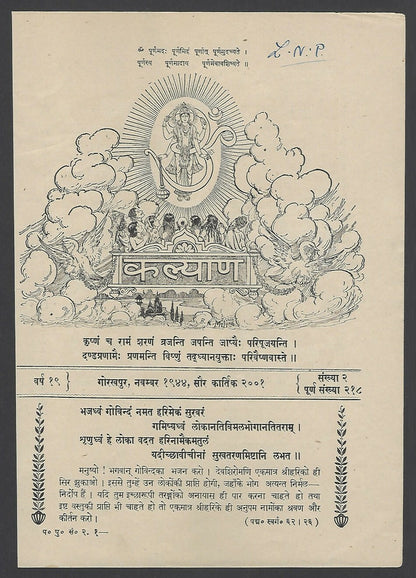 ॐ पूर्णमदः पूर्णमिदं पूर्णात् पूर्णमुदच्यते ।
पूर्णस्य पूर्णमादाय पूर्णमेवावशिष्यते ॥
L.N.P.
कल्याण
कृष्णं च रामं शरणं व्रजन्ति जपन्ति जाप्यैः परिपूजयन्ति ।
दण्डप्रणामैः प्रणमन्ति विष्णुं तद्ध्यानयुक्ताः परिवैष्णवास्ते ॥
वर्ष १९
गोरखपुर, नवम्बर १९४४, सौर कार्तिक २००१
संख्या २
पूर्ण संख्या २१८
भजध्वं गोविन्दं नमत हरिमेकं सुरवरं
गमिष्यध्वं लोकानतिविमलभोगानतितराम् ।
शृणुध्वं हे लोका वदत हरिनामैकमतुलं
यदीच्छावीचीनां सुखतरणमिष्टानि लभत ॥
मनुष्यो ! भगवान् गोविन्दका भजन करो । देवशिरोमणि एकमात्र श्रीहरिको ही
सिर झुकाओ । इससे तुम्हें उन लोकोंकी प्राप्ति होगी, जहाँके भोग अत्यन्त निर्मल—
निर्दोष हैं । यदि तुम इच्छारूपी तरङ्गोंको अनायास ही पार करना चाहते हो तथा
इष्ट वस्तुकी प्राप्ति भी चाहते हो तो एकमात्र श्रीहरिके ही अनुपम नामोंका श्रवण और
कीर्तन करो ।
( पद्म० स्वर्ग० ६२ । २६ )
प० पु० सं० २. १—